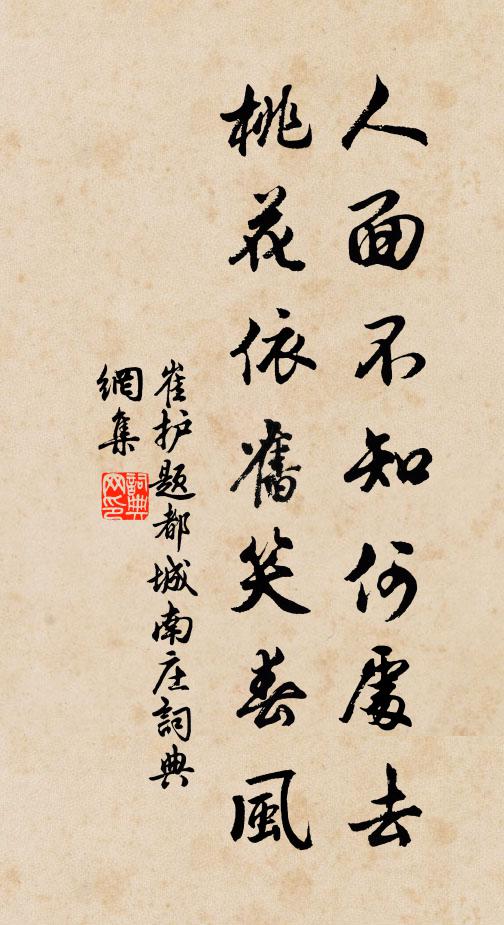 人面不知何處去
桃花依舊笑春風
崔护题都城南庄詞典
網集
詞典
网印